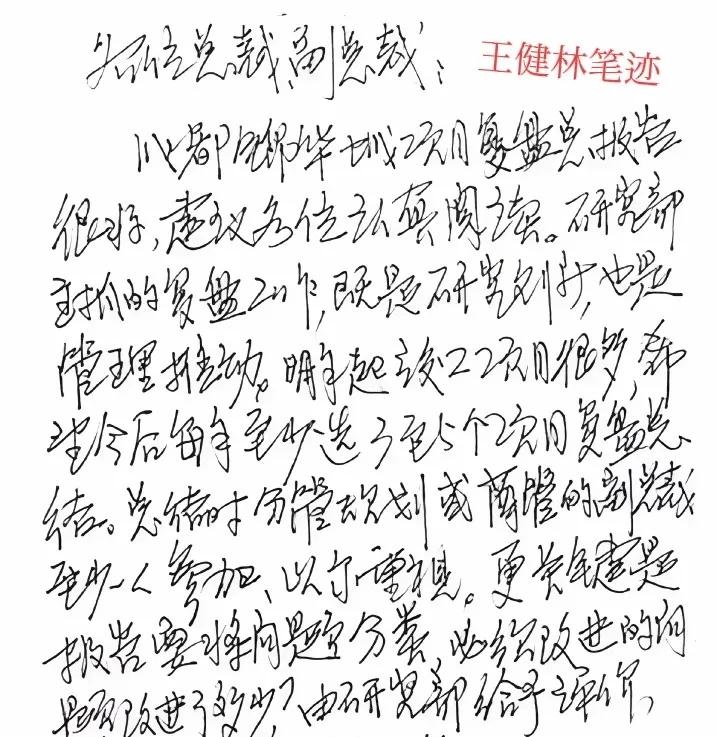 各位总裁、副总裁：
王健林笔迹
成都银泰城项目复盘总报告
很好，建议各位认真阅读。研究部
主抓的复盘工作，既是研究创新，也是
管理推动。明年起竣工项目很多，希
望今后每年至少选3至5个项目复盘总
结。总结时分管规划或商管的副总裁
至少一人参加，以示重视。更关键是
报告要将问题分类，必须改进的问
题改进了多少？由研究部给予评价，